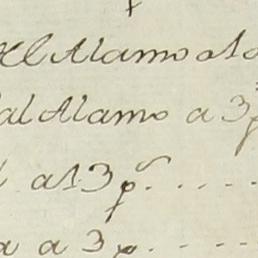 El Alamo a 1
al Alamo a 3 p
a 13 p.^s ....
a a 3 p. ....